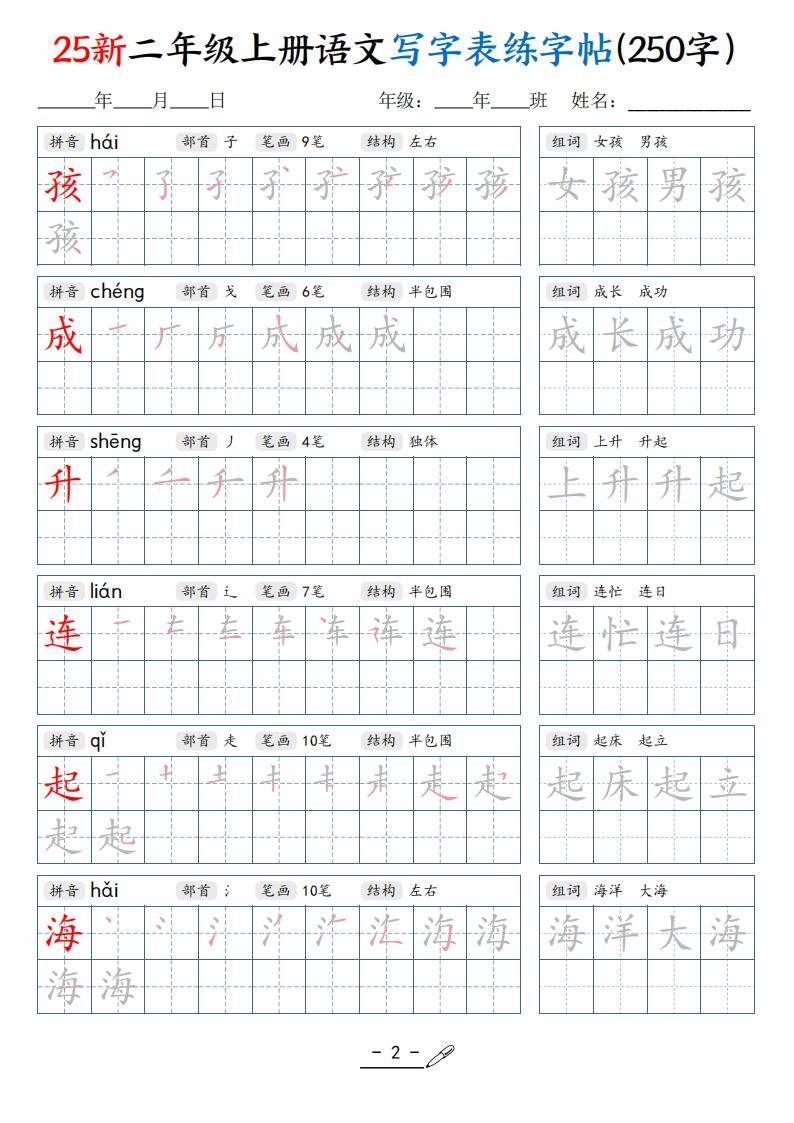 25新二年级上册语文写字表练字帖(250字)
______年____月____日 年级：____年____班 姓名：_____________
拼音 hái 部首 子 笔画 9笔 结构 左右 组词 女孩 男孩
孩 女孩男孩
孩
拼音 chéng 部首 戈 笔画 6笔 结构 半包围 组词 成长 成功
成 成 成长成功
拼音 shēng 部首 丿 笔画 4笔 结构 独体 组词 上升 升起
升 升 上升升起
拼音 lián 部首 辶 笔画 7笔 结构 半包围 组词 连忙 连日
连 连 连忙连日
拼音 qǐ 部首 走 笔画 10笔 结构 半包围 组词 起床 起立
起 起床起立
起 起
拼音 hǎi 部首 氵 笔画 10笔 结构 左右 组词 海洋 大海
海 海洋大海
海 海
- 2 -